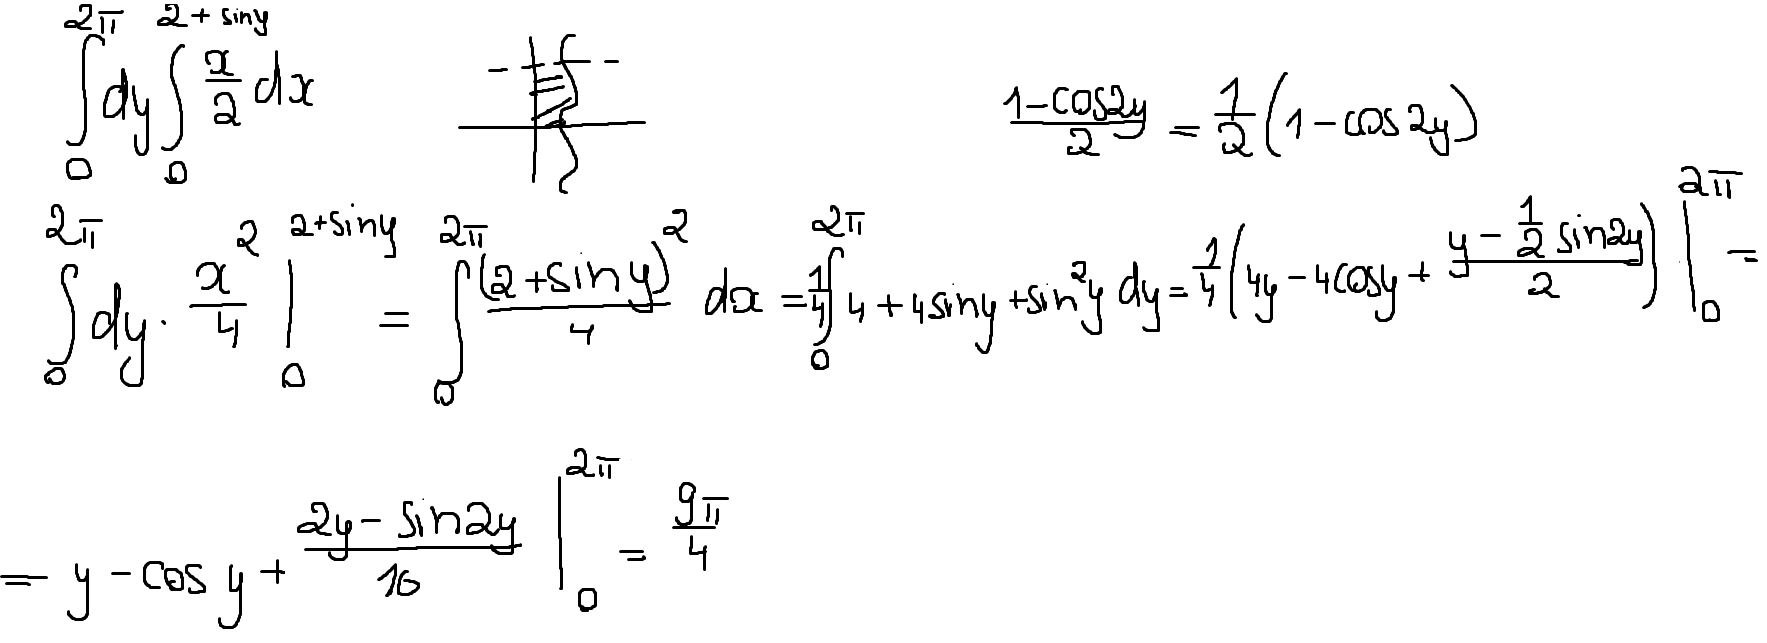 ∫₀^{2π} dy ∫₀^{2+siny} x/2 dx
(1-cos2y)/2 = 1/2 (1-cos2y)
∫₀^{2π} dy · x²/4 |₀^{2+siny} = ∫₀^{2π} (2+siny)²/4 dx = 1/4 ∫₀^{2π} 4+4siny+sin²y dy = 1/4 (4y-4cosy+(y-1/2 sin2y)/2) |₀^{2π} =
= y-cosy+(2y-sin2y)/16 |₀^{2π} = 9π/4